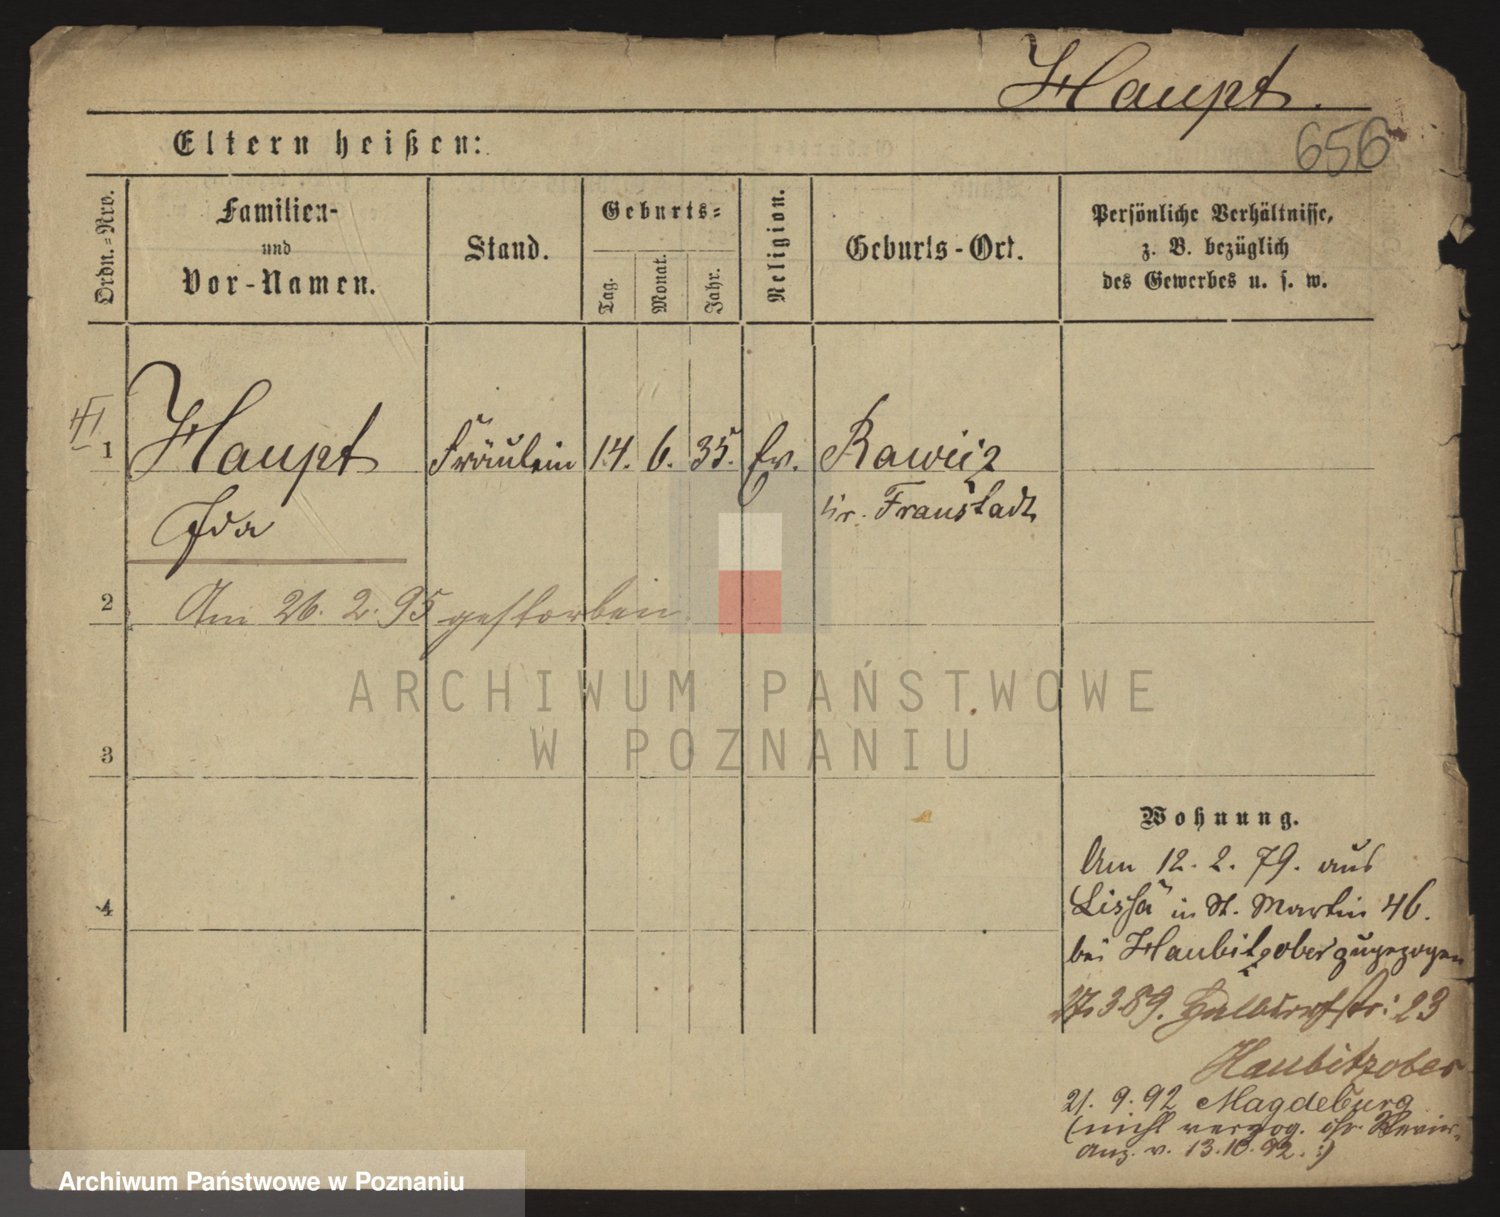 Haupt.
656
Eltern heißen:
Ordn.=Nro.
Familien-
und
Vor-Namen.
Stand.
Geburts=
Tag.
Monat.
Jahr.
Religion.
Geburts-Ort.
Persönliche Verhältnisse,
z. B. bezüglich
des Gewerbes u. s. w.
1
Haupt Fräulein 14. 6. 35. Ev.
Ida
Kr. Fraustadt
2
Am 26. 2. 95 gestorben
3
4
ARCHIWUM PAŃSTWOWE
W POZNANIU
Wohnung.
Am 12. 2. 79. aus
Lissa in St. Martin 46.
bei Haubitzober zugezogen
389. 23
Haubitzober
21. 9. 92 Magdeburg
(nicht verzog.
Anz. v. 13.10.92.:)
Archiwum Państwowe w Poznaniu